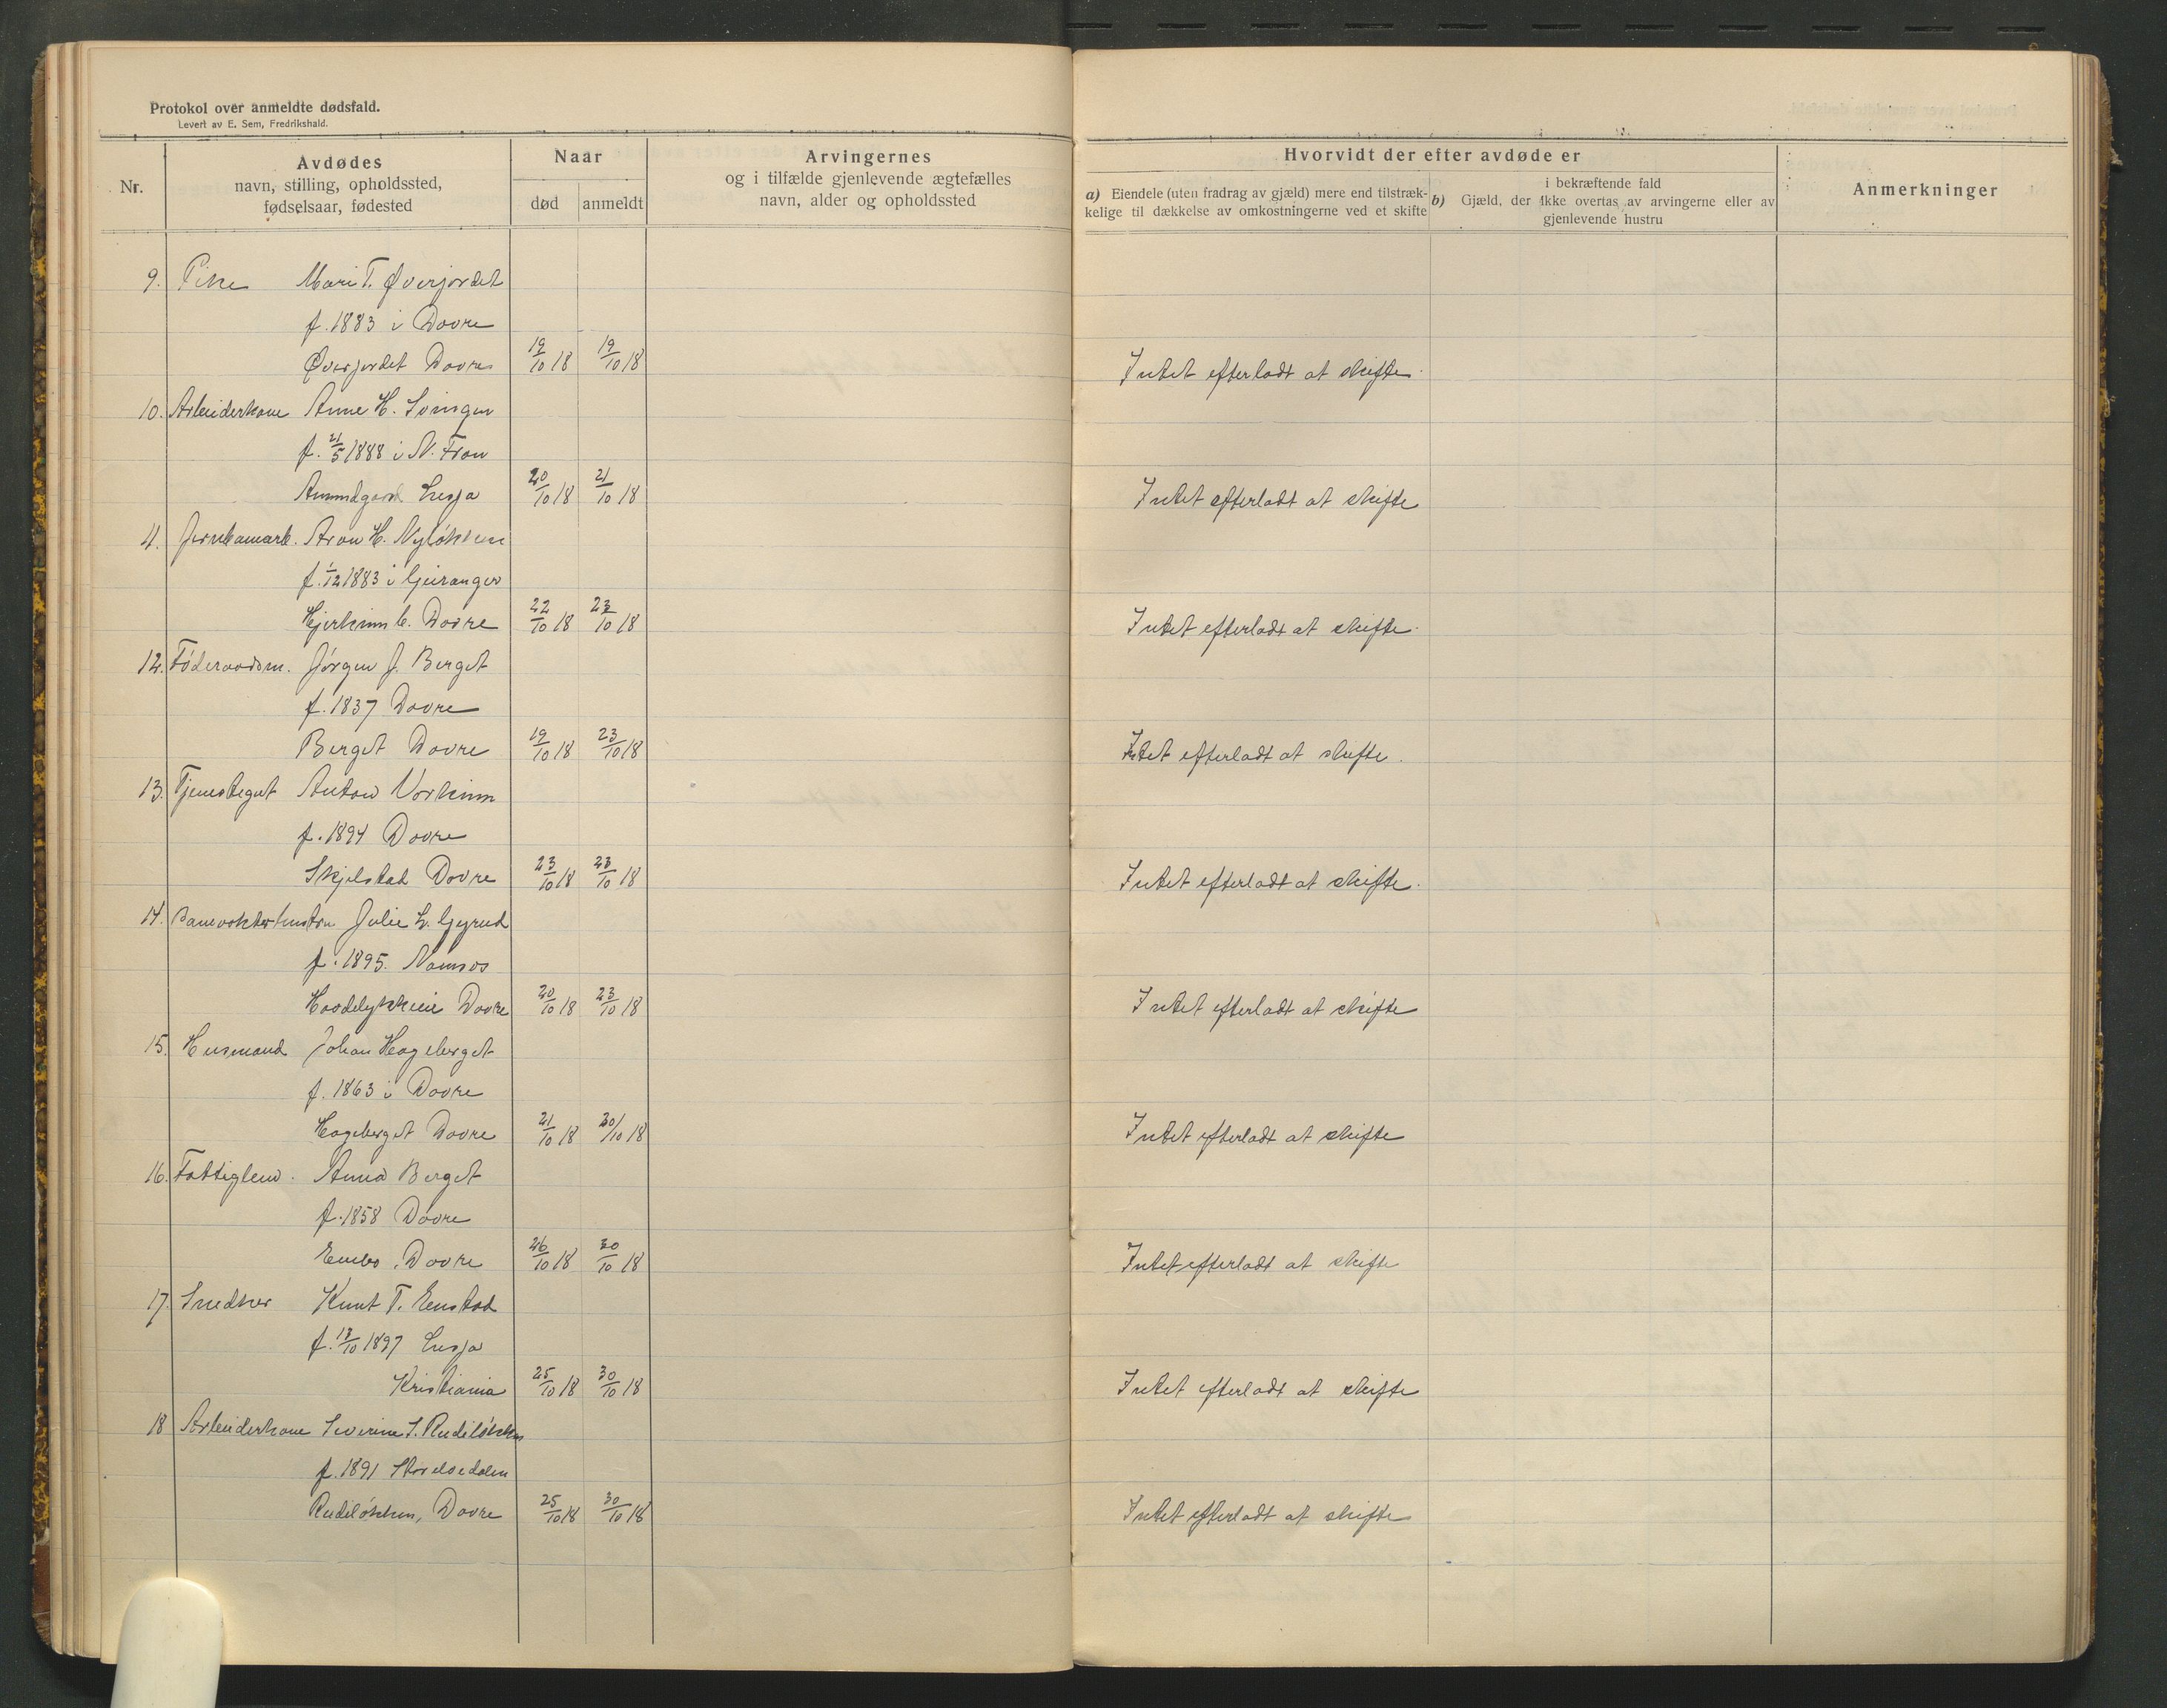 Protokol over anmeldte dødsfald.
Levert av E. Sem, Fredrikshald.
Nr.
Avdødes
navn, stilling, opholdssted,
fødselsaar, fødested
Naar
død
anmeldt
Arvingernes
og i tilfælde gjenlevende ægtefælles
navn, alder og opholdssted
Hvorvidt der efter avdøde er
a) Eiendele (uten fradrag av gjæld) mere end tilstræk-
kelige til dækkelse av omkostningerne ved et skifte
i bekræftende fald
b) Gjæld, der ikke overtas av arvingerne eller av
gjenlevende hustru
Anmerkninger
9. Pike Mari T. Øverjordet
f. 1883 i Dovre
Øverjordet Dovre 19/10 18 19/10 18 Intet efterladt at skifte.
10. Arbeiderkone Anne H. Svingen
f. 21/5 1888 i N. Fron
Amundgaard Lesja 20/10 18 21/10 18 Intet efterladt at skifte
11. Jernbanearb. Aron H. Nyløkken
f. 1/12 1883 i Geiranger
Hjerkinn b. Dovre 22/10 18 23/10 18 Intet efterladt at skifte.
12. Føderaadsm. Jørgen J. Berget
f. 1837 Dovre
Berget Dovre 19/10 18 23/10 18 Intet efterladt at skifte.
13. Tjenestegut Anton Vorkinn
f. 1894 Dovre
Skjelstad Dovre 23/10 18 23/10 18 Intet efterladt at skifte.
14. Banevokterhustru Julie L. Gyrud
f. 1895. Namsos
Dovre 20/10 18 23/10 18 Intet efterladt at skifte
15. Husmand Johan Hageberget
f. 1863 i Dovre
Hageberget Dovre 21/10 18 30/10 18 Intet efterladt at skifte
16. Fattiglem. Anna Berget
f. 1858 Dovre
Embo, Dovre 26/10 18 30/10 18 Intet efterladt at skifte
17. Snedker Knut T. Enstad
f. 13/10 1897 Lesja
Kristiania 25/10 18 30/10 18 Intet efterladt at skifte
18 Arbeiderkone Severine S. Rudiløkken
f. 1891 Storelvedalen
Rudiløkken, Dovre 25/10 18 30/10 18 Intet efterladt at skifte